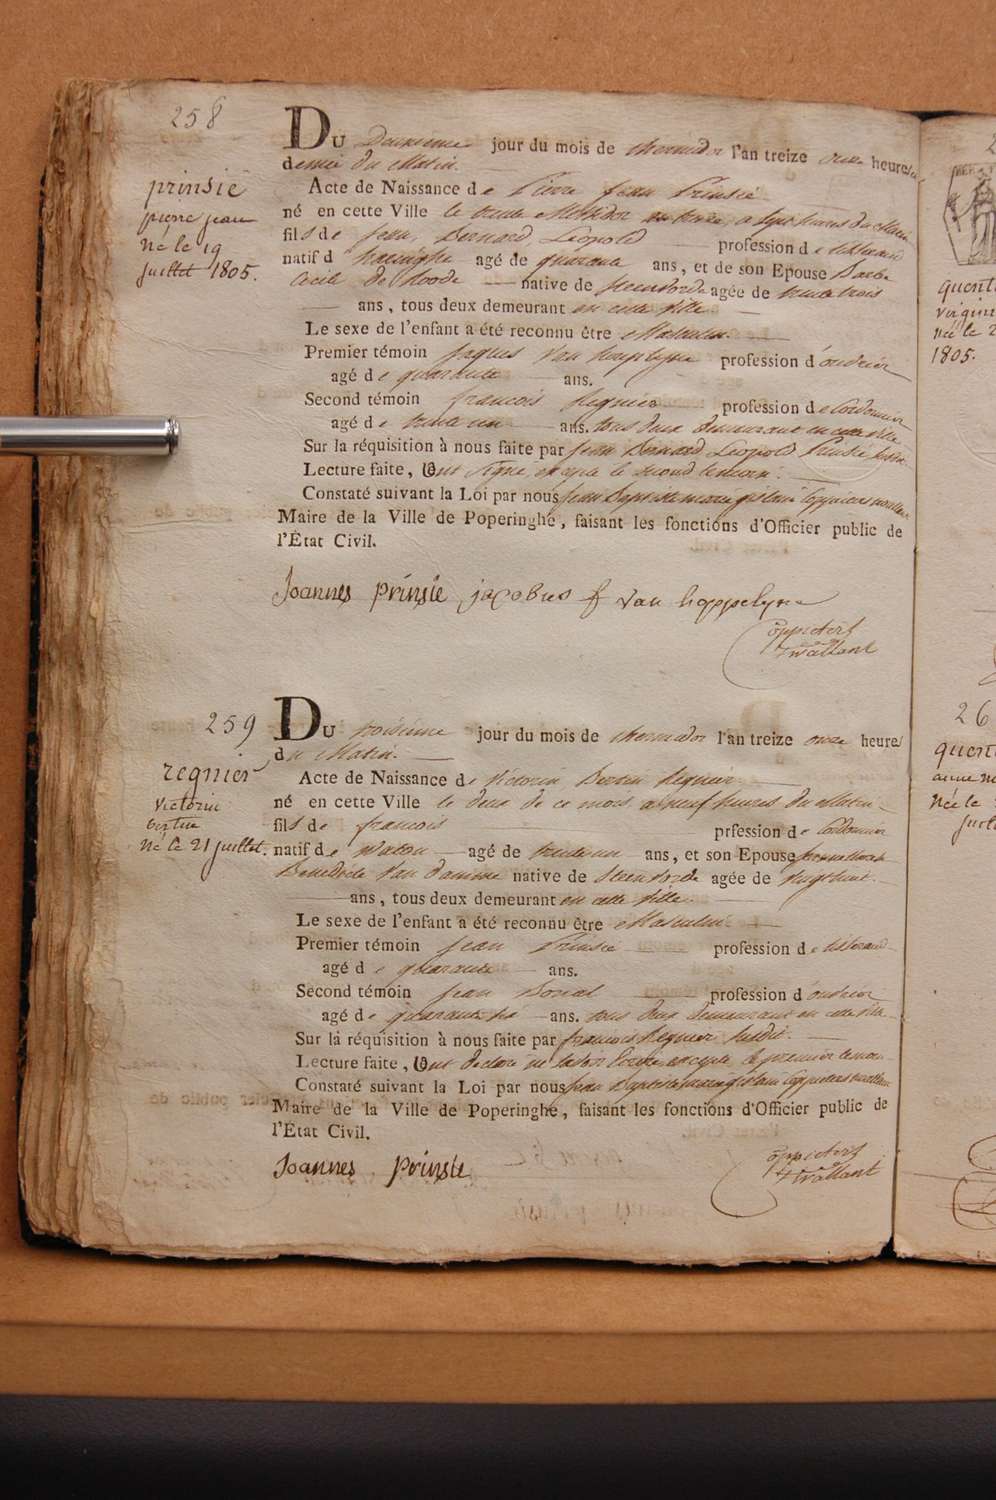 258
prinsië
pierre jean
né le 19
juillet 1805.
DU Deuxieme jour du mois de thermidor l'an treize onze heures
demie du Matin.
Acte de Naissance de Pierre Jean Prinsié
né en cette Ville le trente Messidor an treize, a sept heures du Matin
fils de Jean, Bernard, Léopold profession de tisserand
natif d' haringhe agé de quarante ans, et de son Epouse Barbe
Cecile de Roode native de Steenvorde agée de trente trois
ans, tous deux demeurant en cette Ville
Le sexe de l'enfant a été reconnu être Masculin.
Premier témoin Jaques Van profession d'ouvrier
agé de quarante ans.
Second témoin francois Regnier profession de Cordonnier
agé de trente un ans. tous deux demeurant en cette ville
Sur la réquisition à nous faite par Jean Bernard Léopold Prinsié susdit
Lecture faite, Ont signé, excepté le second temoin.
Constaté suivant la Loi par nous Jean Baptiste marie
Maire de la Ville de Poperinghe, faisant les fonctions d'Officier public de
l'État Civil.
Joannes prinsie jacobus f van
259
regnier
victorin
bertin
né le 21 juillet.
DU troisieme jour du mois de thermidor l'an treize onze heures
du Matin.
Acte de Naissance de Victorin Bertin Regnier
né en cette Ville le deux de ce mois, a neuf heures du Matin
fils de francois prfession de Cordonnier
natif de Watou agé de trente un ans, et son Epouse
Benedicte Van damme native de Steenvorde agée de vingt huit.
ans, tous deux demeurant en cette Ville.
Le sexe de l'enfant a été reconnu être Masculin
Premier témoin Jean Prinsie profession de tisserand
agé de quarante ans.
Second témoin Jean profession d'ouvrier
agé de quarante six ans. tous deux demeurant en cette Ville
Sur la réquisition à nous faite par francois Regnier susdit.
Lecture faite, Ont declaré ne savoir Ecrire, excepté le premier temoin
Constaté suivant la Loi par nous Jean Baptiste marie
Maire de la Ville de Poperinghe, faisant les fonctions d'Officier public de
l'État Civil.
Joannes prinsie
quent
virgini
née le 2
1805.
26
quent
anne m
née le
juil